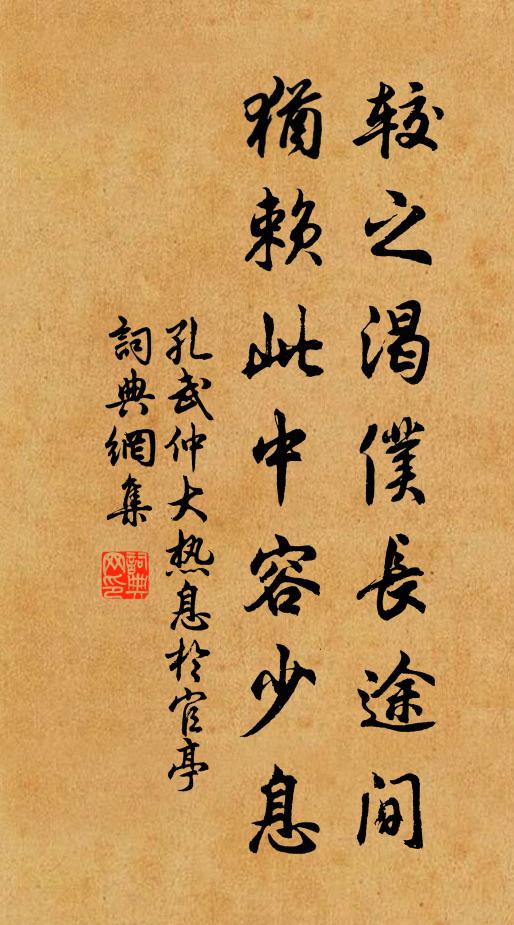 较之渴僕長途间
猶赖此中容少息
孔武仲大热息於官亭
詞典網集
詞典网印